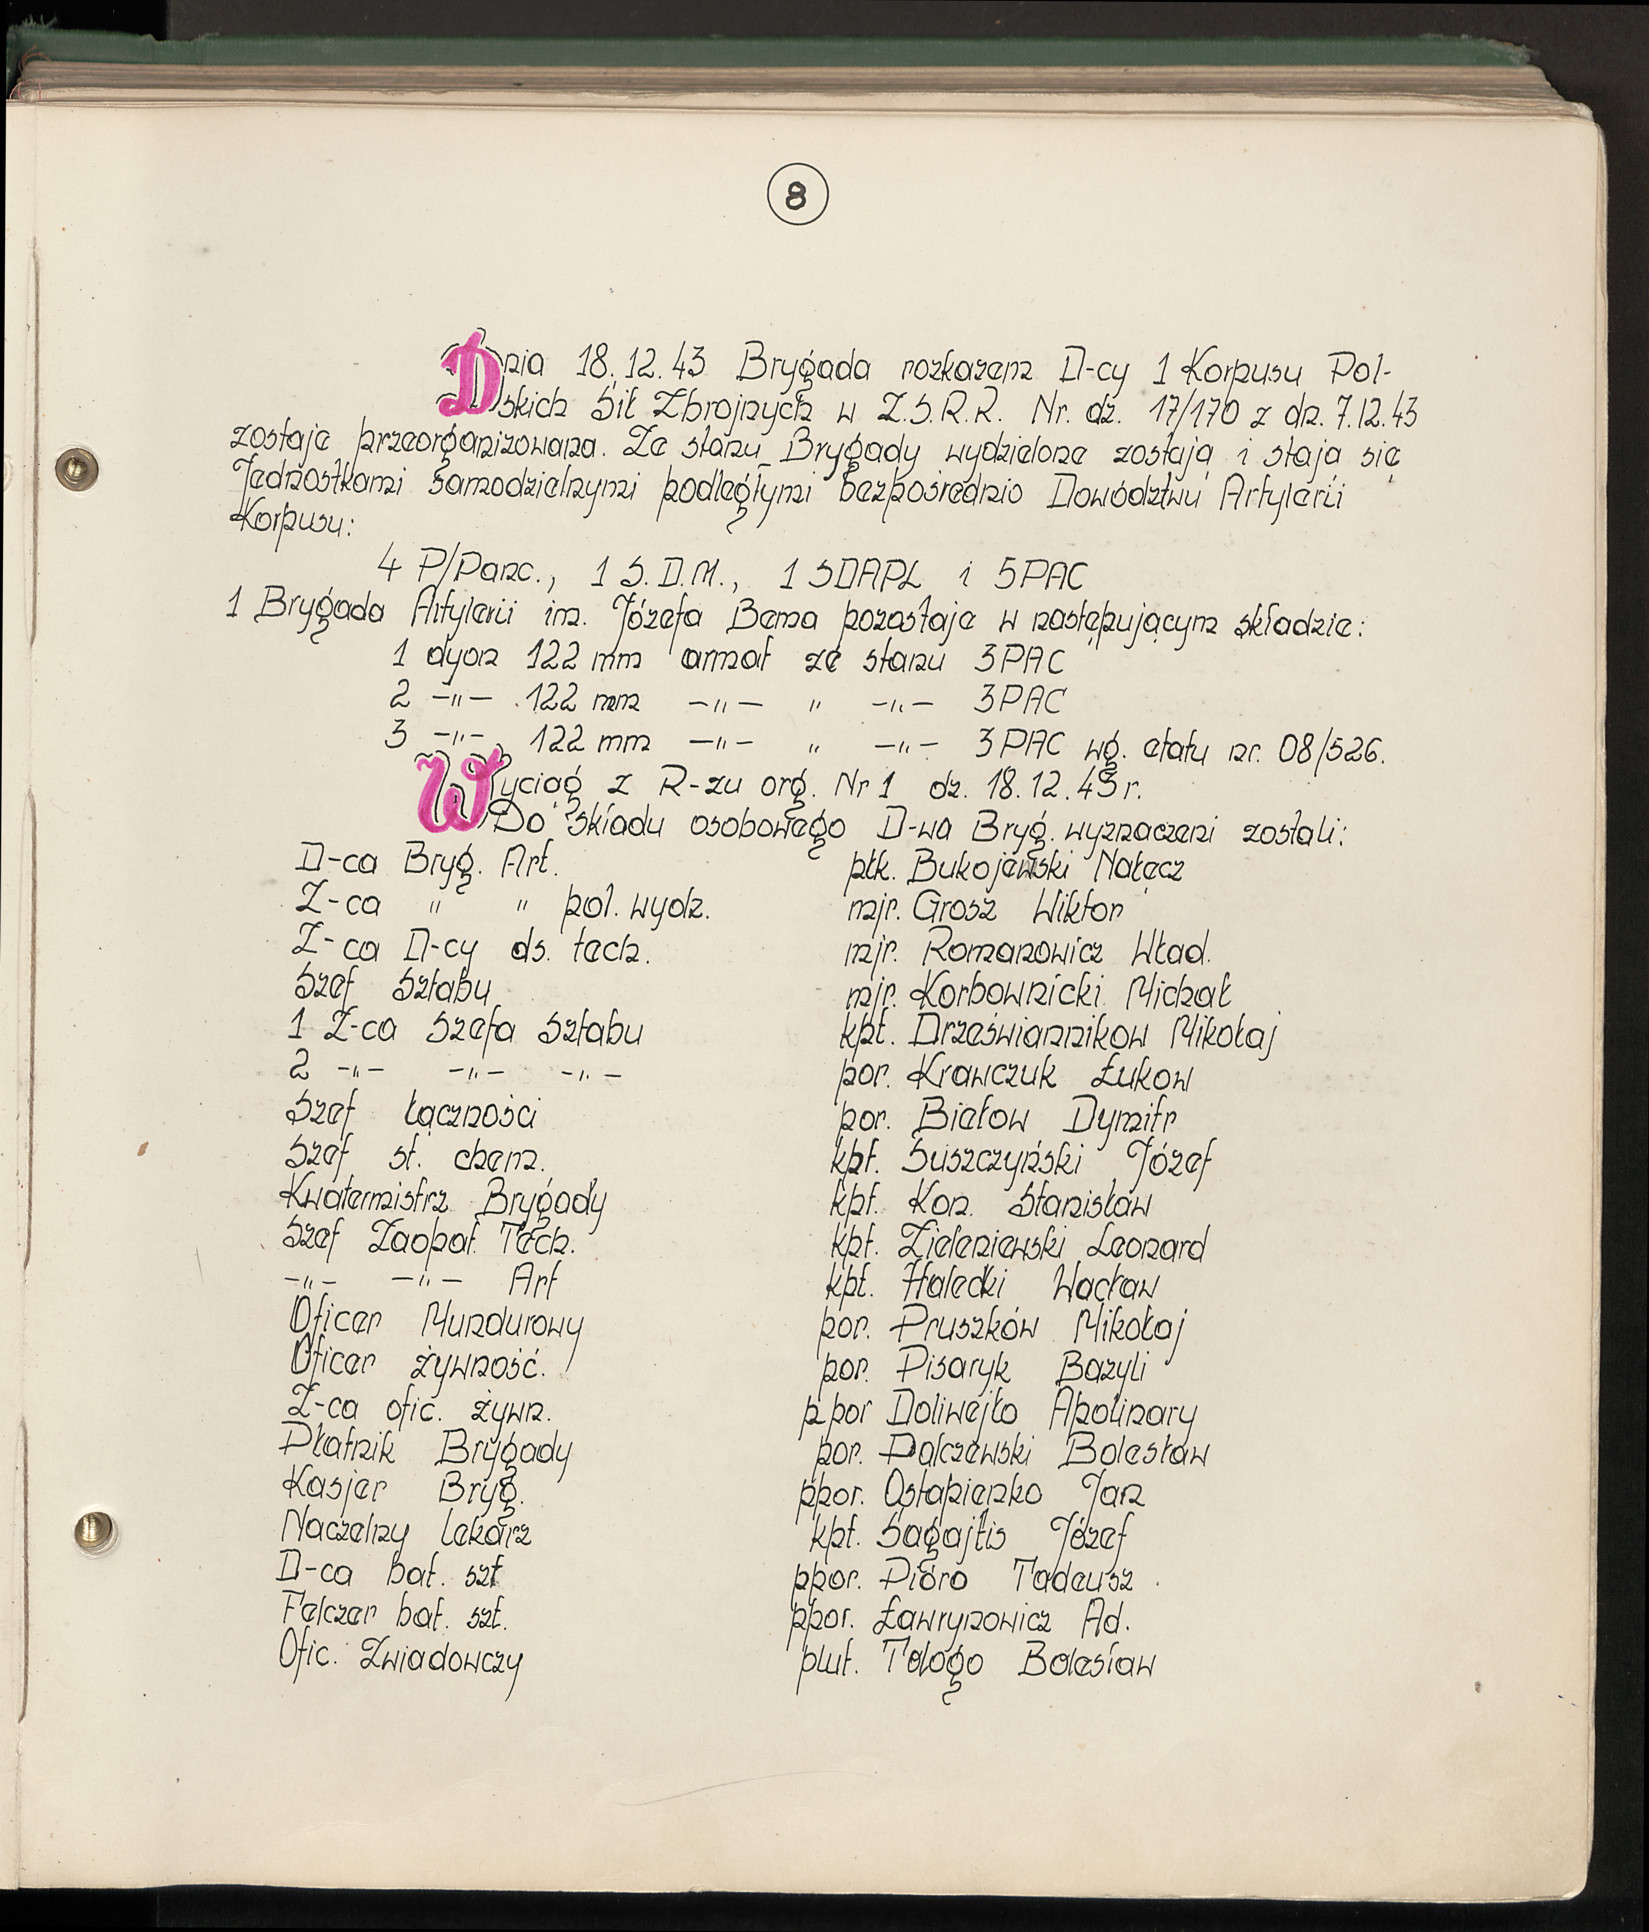 8
Dnia 18.12.43 Brygada rozkazem D-cy 1 Korpusu Pol-
skich Sił Zbrojnych w Z.S.R.R. Nr. dz. 17/170 z dn. 7.12.43
zostaje przeorganizowana. Ze stanu Brygady wydzielone zostają i stają się
Jednostkami samodzielnymi podległymi bezpośrednio Dowództwu Artylerii
Korpusu:
4 P/Panc., 1 S.D.M., 1 SDAPL i 5PAC
1 Brygada Artylerii im. Józefa Bema pozostaje w następującym składzie:
1 dyon 122 mm armat ze stanu 3PAC
2 -"- 122 mm -"- " -"- 3PAC
3 -"- 122 mm -"- " -"- 3PAC wg. etatu nr. 08/526.
Wyciąg z R-zu org. Nr 1 dz. 18.12.43 r.
Do składu osobowego D-wa Bryg. wyznaczeni zostali:
D-ca Bryg. Art. płk. Bukojewski Nałęcz
Z-ca " " pol. wych. mjr. Grosz Wiktor
Z-ca D-cy ds. tech. mjr. Romanowicz Wład.
Szef Sztabu mjr. Korbownicki Michał
1 Z-ca Szefa Sztabu kpt. Drzeświannikow Mikołaj
2 -"- -"- -"- por. Krawczuk Łukow
Szef łączności por. Biełow Dymitr
Szef sł. chem. kpt. Suszczyński Józef
Kwatermistrz Brygady kpt. Kon. Stanisław
Szef Zaopat. Tech. kpt. Zieleniewski Leonard
-"- -"- Art kpt. Halecki Wacław
Oficer Mundurowy por. Pruszków Mikołaj
Oficer żywność. por. Pisaryk Bazyli
Z-ca ofic. żywn. ppor Doliwejło Apolinary
Płatnik Brygady por. Palczewski Bolesław
Kasjer Bryg. ppor. Ostapienko Jan
Naczelny lekarz kpt. Sagajtis Józef
D-ca bat. szt ppor. Pióro Tadeusz
Felczer bat. szt. ppor. Ławrynowicz Ad.
Ofic. Zwiadowczy plut. Tologo Bolesław